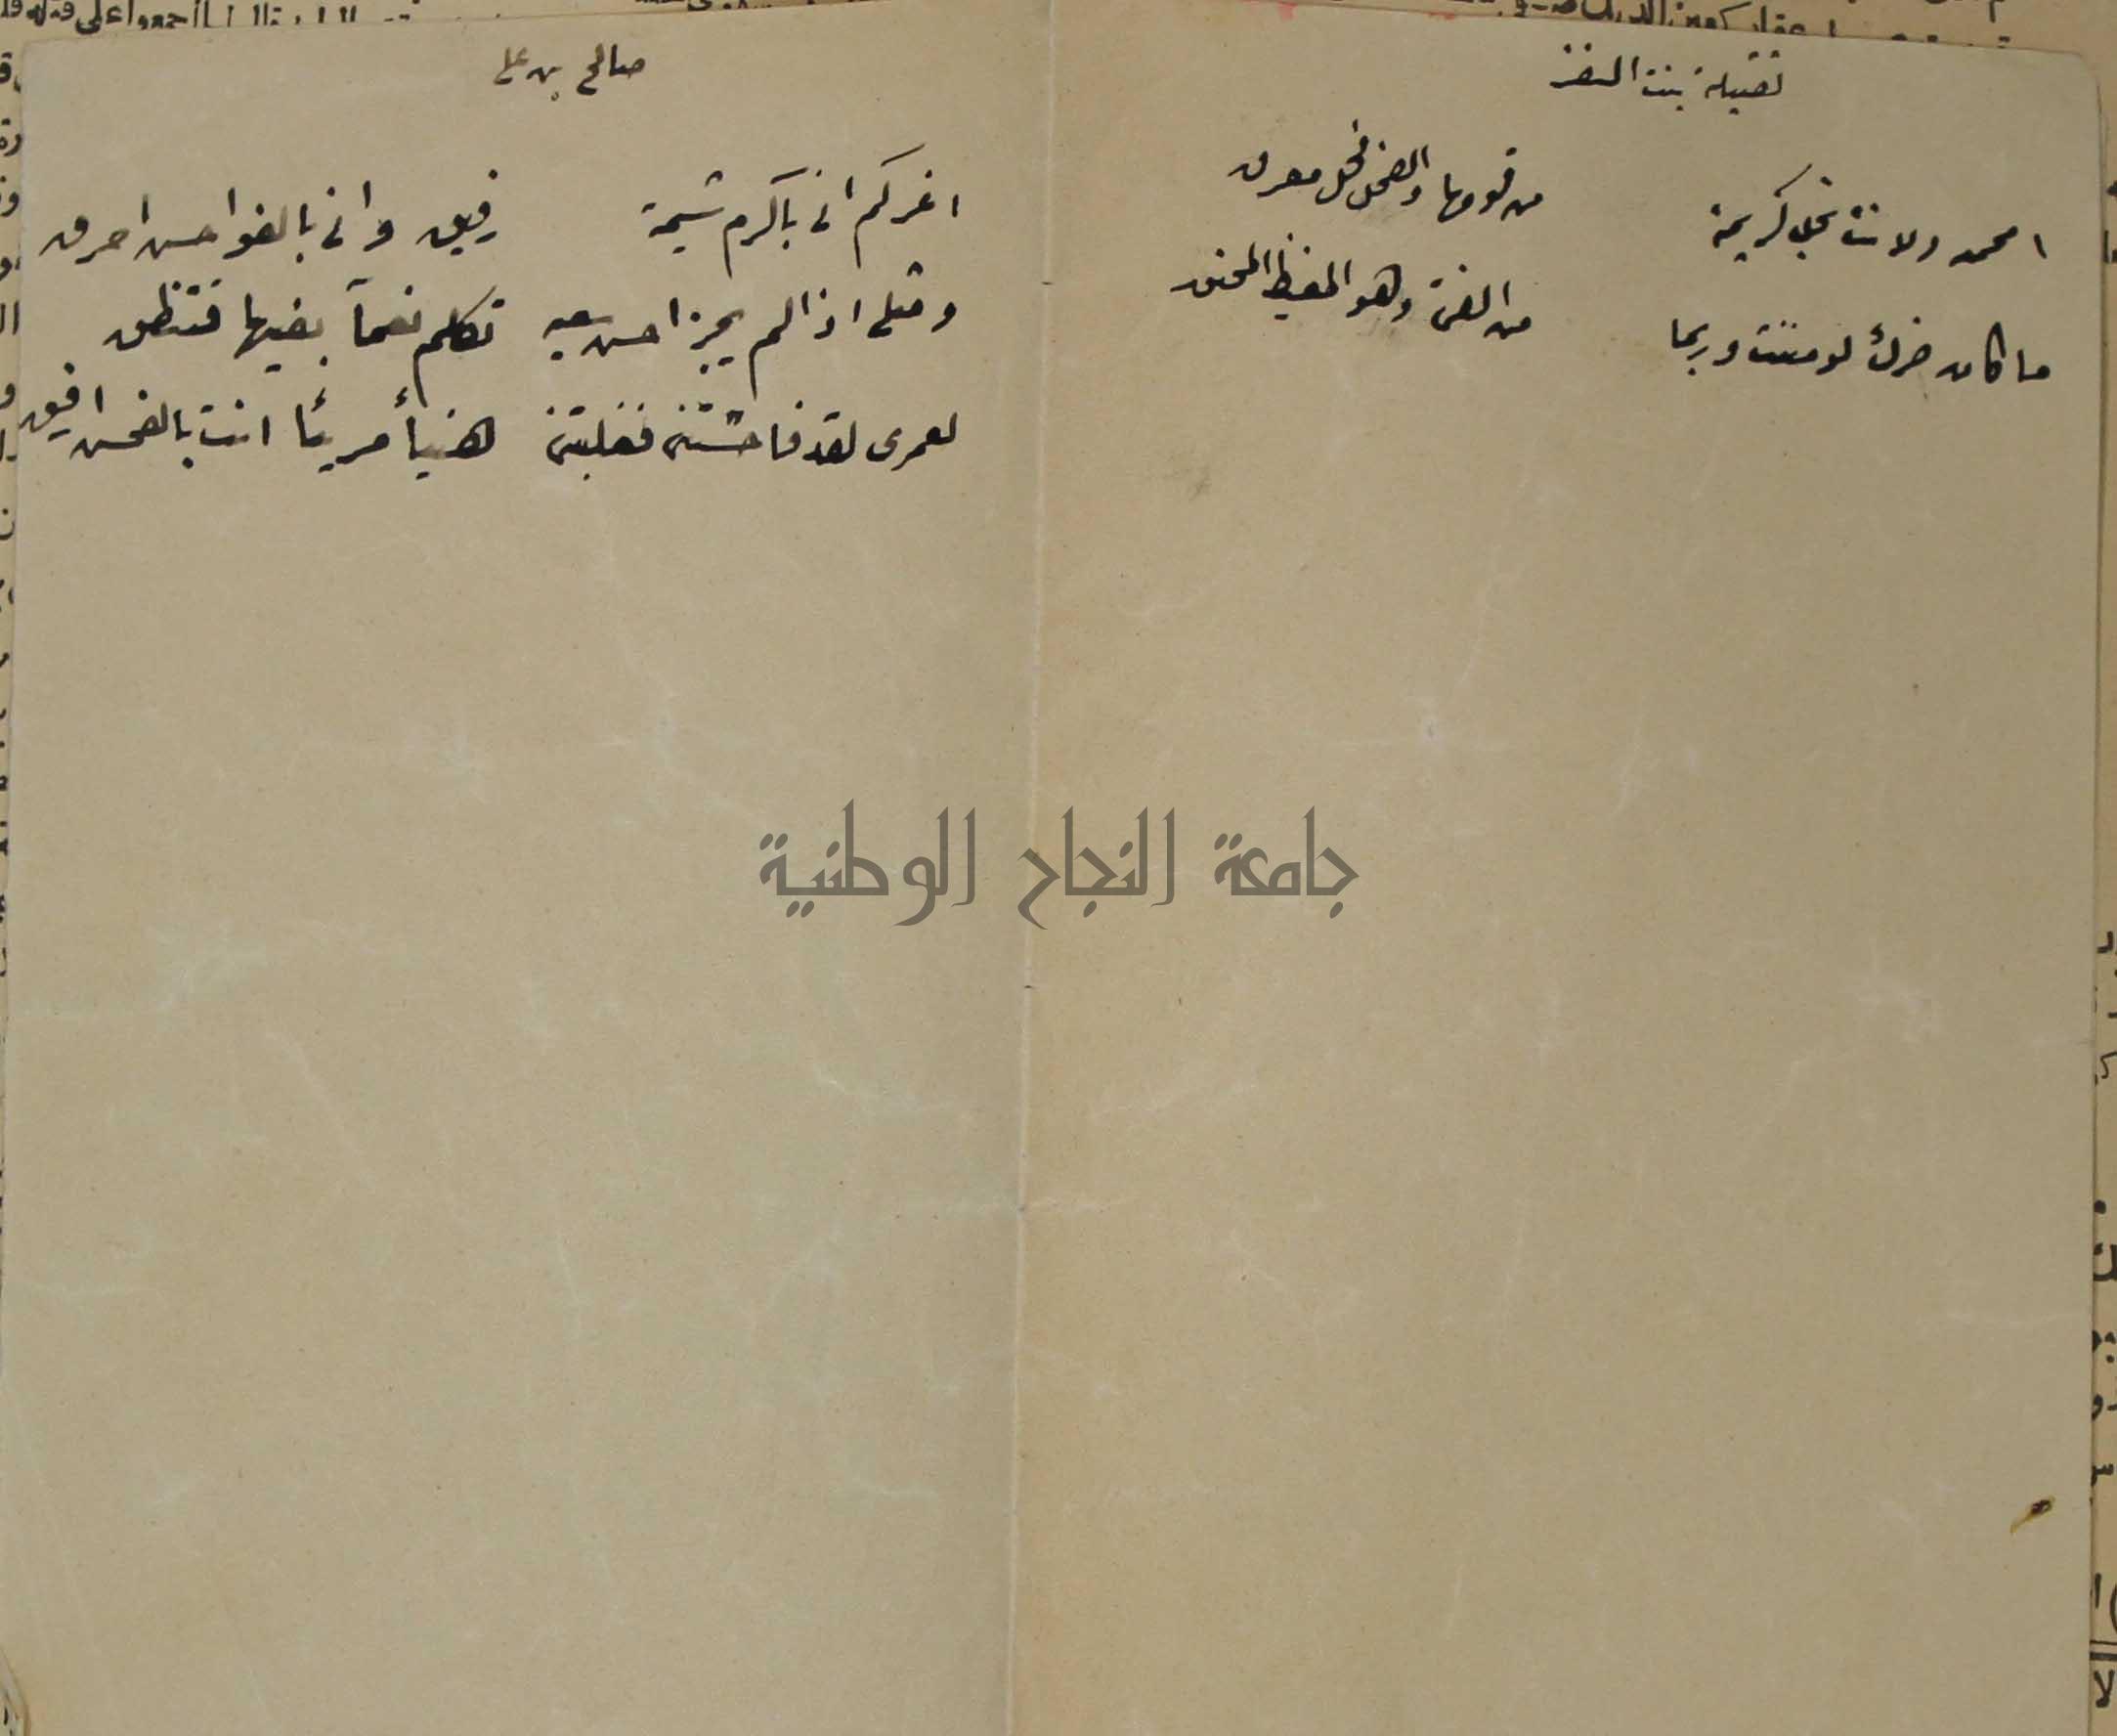 نفيلة بنت النضر
امحمد ولانت نجل كريمة من قومها والفحل فحل معرق
ما كان ضرك لو مننت وربما من الفتى وهو المغيظ المحنق
صالح بن علي
اغركم اني باكرم شيمة رفيق واني بالفواحش اخرق
ومثلى اذا لم يجز احسن سعيه تكلم نعماه بفيها فتنطق
لعمرى لقد فاحشتنى فغلبتنى هنيأ مريئا انت بالفحش افيق
جامعة النجاح الوطنية